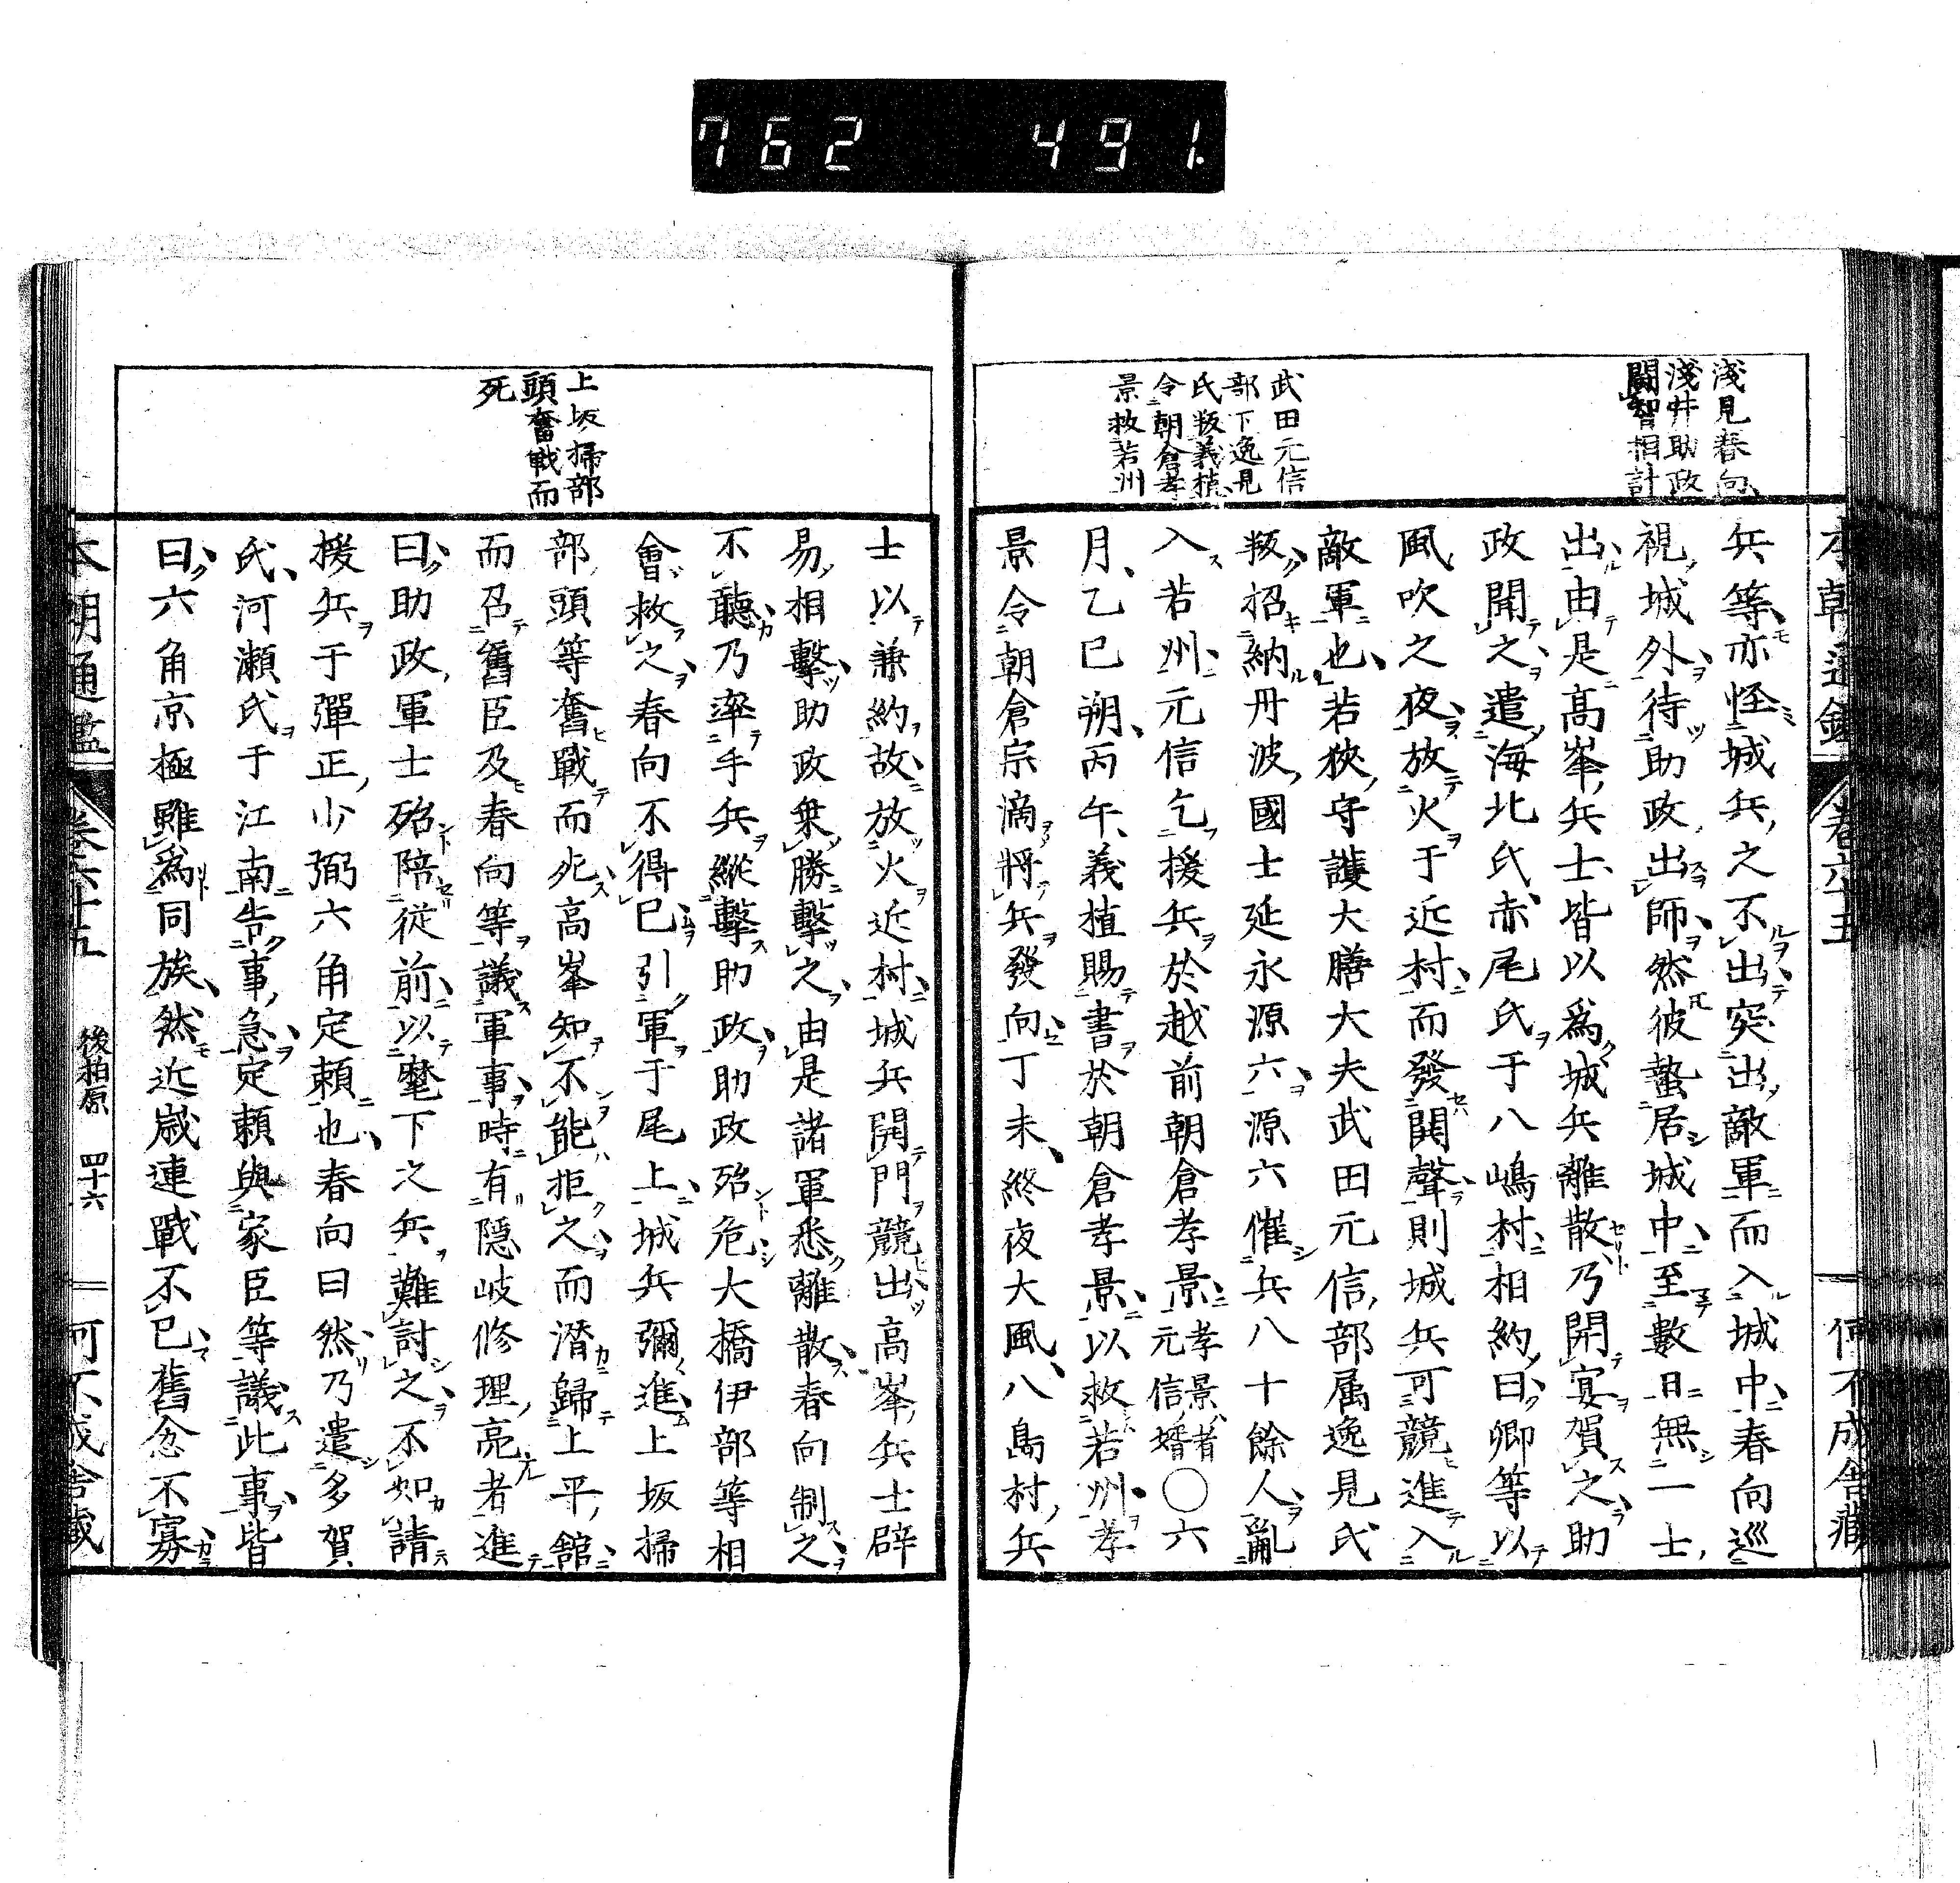 762 491.
淺見春向
淺井助政
鬪智相計
武田元信
部下逸見
氏叛義植
令朝倉孝
景救若州
本朝通鑑 卷六十五 何不成舍藏
兵等亦怪城兵之不出突出敵軍而入城中春向巡
視城外待助政出師然彼蟄居城中至數日無一士
出由是高峯兵士皆以爲城兵離散乃開宴賀之助
政聞之遣海北氏赤尾氏于八嶋村相約曰卿等以
風吹之夜放火于近村而發鬨聲則城兵可競進入
敵軍也若狹守護大膳大夫武田元信部属逸見氏
叛招納丹波國士延永源六源六催兵八十餘人亂
入若州元信乞援兵於越前朝倉孝景孝景者元信婿〇六
月乙巳朔丙午義植賜書於朝倉孝景以救若州孝
景令朝倉宗滴將兵發向丁未終夜大風八島村兵
上坂掃部
頭奮戰而
死
士以兼約故放火近村城兵開門競出高峯兵士辟
易相擊助政乗勝擊之由是諸軍悉離散春向制之
不聽乃率手兵縱擊助政助政殆危大橋伊部等相
會救之春向不得已引軍于尾上城兵彌進上坂掃
部頭等奮戰而死高峯知不能拒之而潛歸上平舘
而召舊臣及春向等議軍事時有隱岐修理亮者進
曰助政軍士殆陪從前以麾下之兵難討之不如請
援兵于彈正少弼六角定頼也春向曰然乃遣多賀
氏河瀬氏于江南告事急定頼與家臣等議此事皆
曰六角京極雖爲同族然近歳連戰不已舊念不寡
本朝通鑑 卷六十五 後柏原 四十六 何不成舍藏